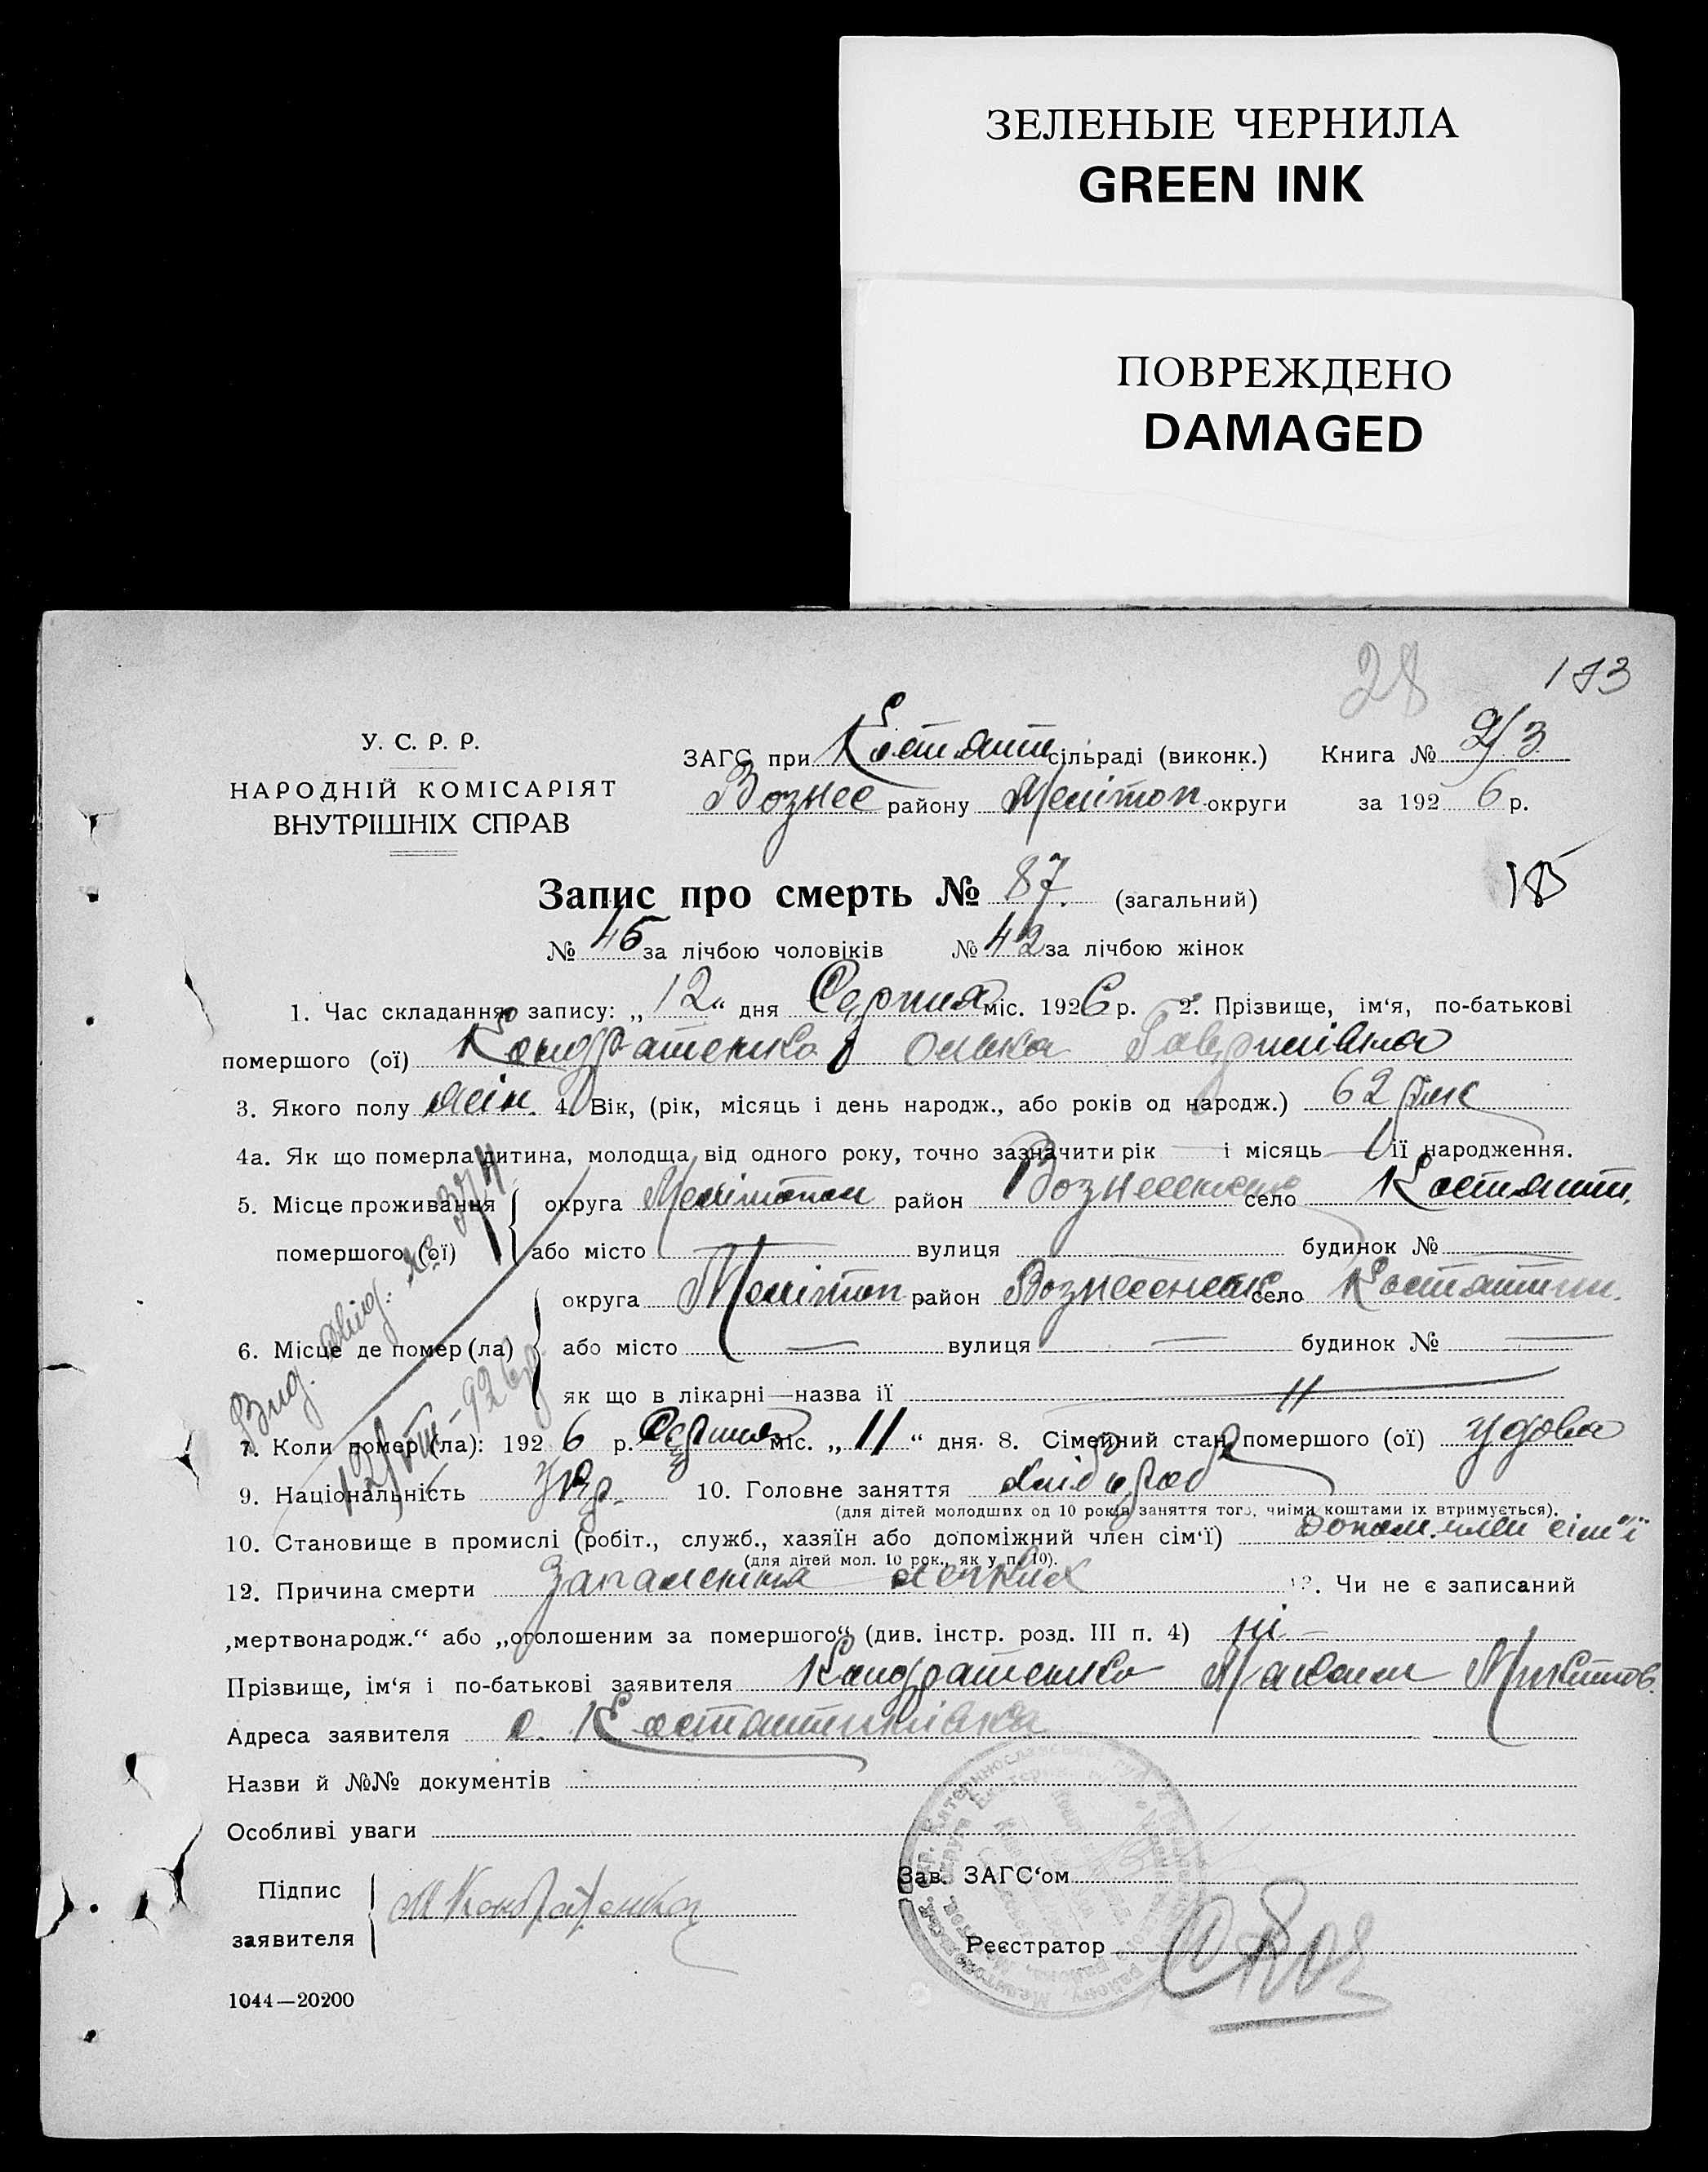 ЗЕЛЕНЫЕ ЧЕРНИЛА
GREEN INK
ПОВРЕЖДЕНО
DAMAGED
28 183
У. С. Р. Р.
НАРОДНІЙ КОМІСАРІЯТ
ВНУТРІШНІХ СПРАВ
ЗАГС при Костянт сільраді (виконк.) Книга № 2/3
Вознес району Мелітоп округи за 1926 р.
Запис про смерть № 87. (загальний)
185
№ 45 за лічбою чоловіків № 42 за лічбою жінок
1. Час складання запису: „12“ дня Серпня міс. 1926 р. 2. Прізвище, ім‘я, по-батькові
помершого (ої) Кондратенко Гаврилівна
3. Якого полу жін. 4. Вік, (рік, місяць і день народж., або років од народж.) 62 рок
4а. Як що померла дитина, молодща від одного року, точно зазначити рік — і місяць — її народження.
5. Місце проживання помершого (ої) округа Мелітопол район Вознесенсько село Костянт.
або місто — вулиця — будинок № —
6. Місце де помер (ла) округа Мелітоп район Вознесенськ село Костянтин.
або місто — вулиця — будинок № —
як що в лікарні—назва її — 〃 —
7. Коли помер (ла): 1926 р. Серпня міс. „11“ дня. 8. Сімейний стан помершого (ої) удова
9. Національність Укр. 10. Головне заняття хлібороб
(для дітей молодших од 10 років заняття того, чиїми коштами їх втримується).
10. Становище в промислі (робіт., служб., хазяїн або допоміжний член сім‘ї) допом. член сім'ї
(для дітей мол. 10 рок., як у п. 10).
12. Причина смерти Запалення легких 12. Чи не є записаний
„мертвонародж.“ або „оголошеним за помершого“ (див. інстр. розд. III п. 4) ні —
Прізвище, ім‘я і по-батькові заявителя Кондратенко Максим Микитов.
Адреса заявителя с. Костянтинівка
Назви й №№ документів
Особливі уваги
Вид. 12/VIII-926р
Підпис заявителя М Кондратенко
Зав. ЗАГС‘ом
Реєстратор
1044—20200